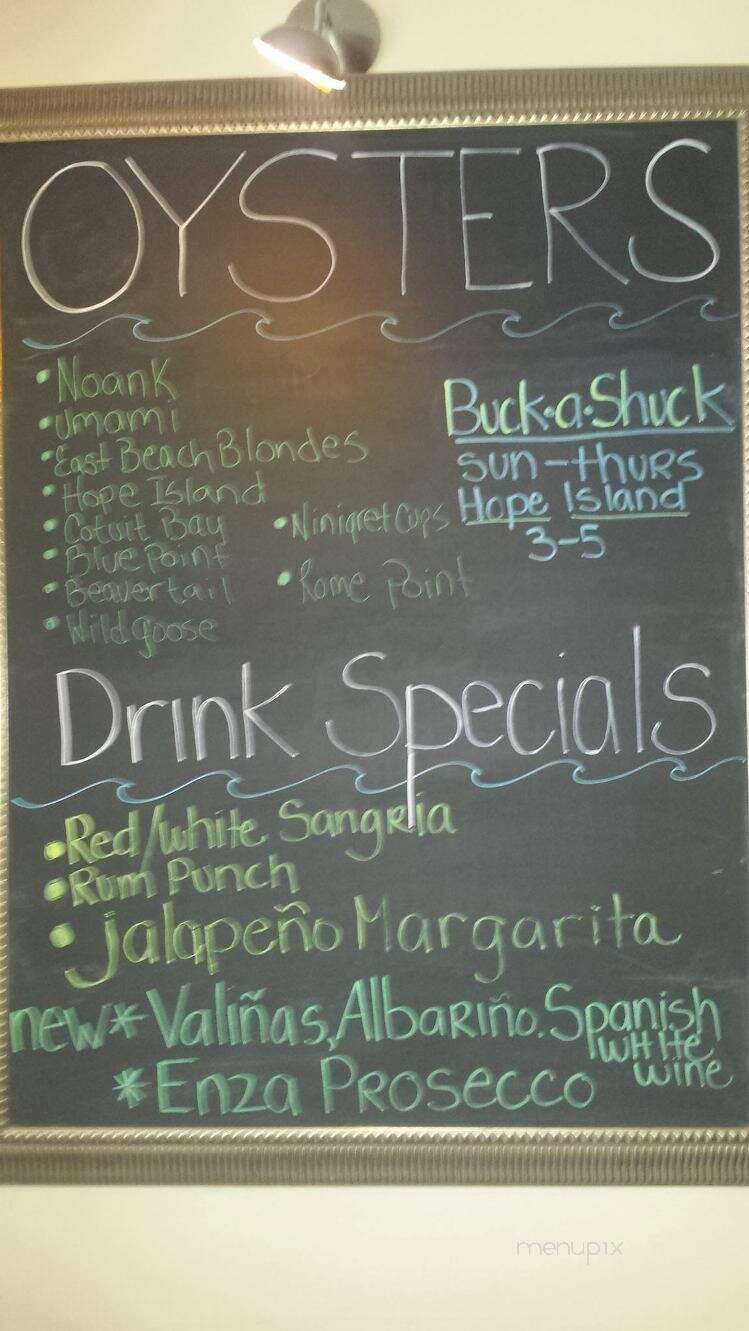 OYSTERS
• Noank
• Umami
• East Beach Blondes
• Hope Island
• Cotuit Bay
• Blue Point
• Beavertail
• Wildgoose
• Ninigret Cups
• Rome Point
Buck·a·Shuck
Sun-thurs
Hope Island
3-5
Drink Specials
• Red/white Sangria
• Rum Punch
• Jalapeño Margarita
new * Valiñas, Albariño. Spanish
white
wine
* Enza Prosecco
menupix